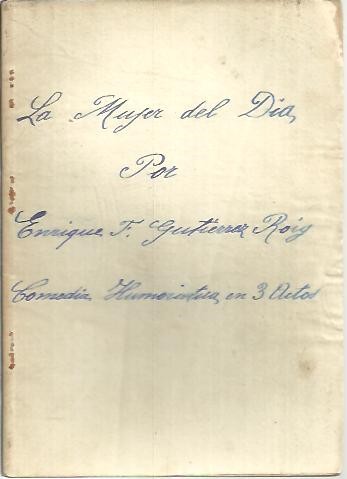 La Mujer del Dia,
Por
Enrique F. Gutierrez Roig
Comedia Humoristica en 3 Actos